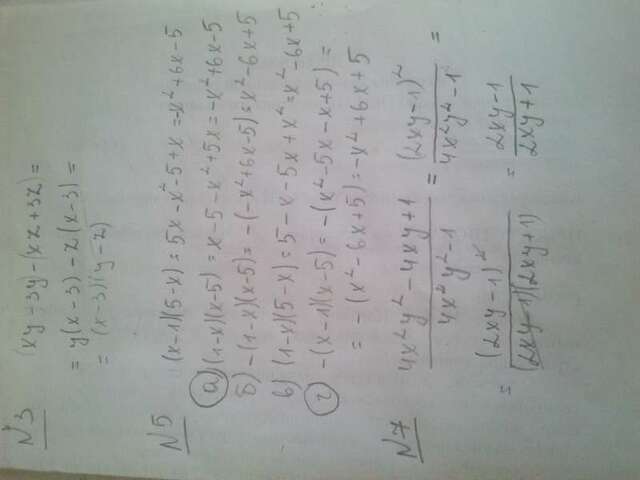 N3
(xy-3y)-(xz+3z)=
= y(x-3)-z(x-3)=
= (x-3)(y-z)
N5
(x-1)(5-x)=5x-x²-5+x=-x²+6x-5
а) (1-x)(x-5)=x-5-x²+5x=-x²+6x-5
б) -(1-x)(x-5)=-(-x²+6x-5)=x²-6x+5
в) (1-x)(5-x)=5-x-5x+x²=x²-6x+5
г) -(x-1)(x-5)=-(x²-5x-x+5)=
= -(x²-6x+5)=-x²+6x+5
N7
4x²y²-4xy+1 / 4x²y²-1 = (2xy-1)² / 4x²y²-1 =
= (2xy-1)² / (2xy-1)(2xy+1) = 2xy-1 / 2xy+1